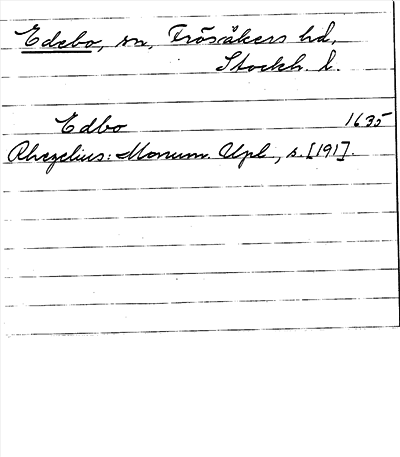 Edebo, sn, Frösåkers hd,
Stockh. l.
Edbo 1635
Rhezelius: Monum. Upl., s. [191].